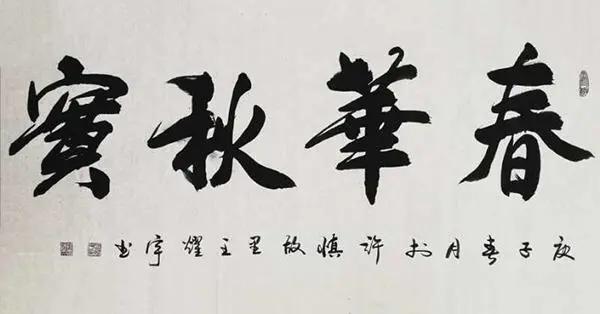 春華秋實
庚子春月於許慎故里王耀宇書